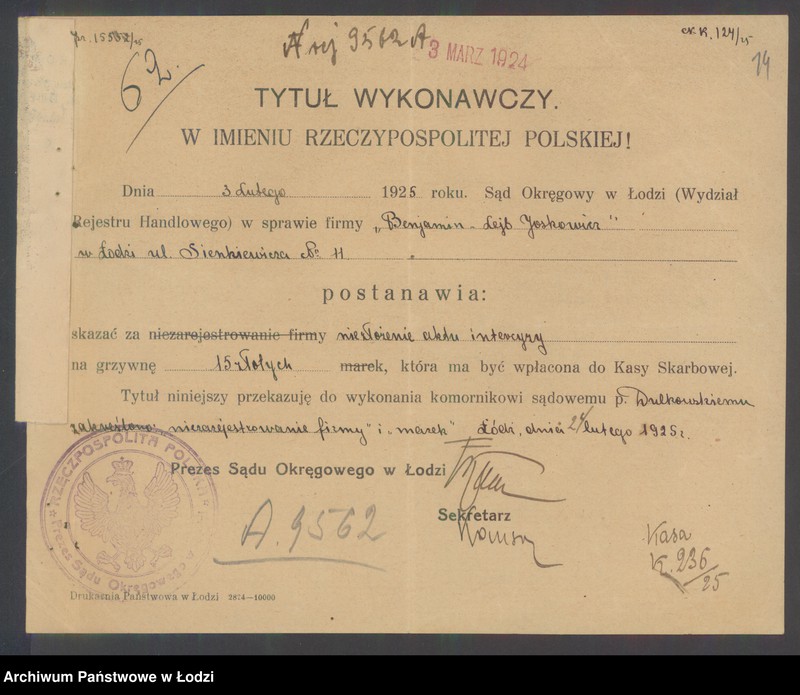 A rej 9562 A
№ K. 124/25
3 MARZ 1924
14
62.
TYTUŁ WYKONAWCZY.
W IMIENIU RZECZYPOSPOLITEJ POLSKIEJ!
Dnia 3 Lutego 1925 roku. Sąd Okręgowy w Łodzi (Wydział
Rejestru Handlowego) w sprawie firmy „Benjamin-Lejb Joskowicz"
w Łodzi ul. Sienkiewicza № 11
postanawia:
skazać za niezarejestrowanie firmy niezłożenie aktu intercyzy
na grzywnę 15 złotych marek, która ma być wpłacona do Kasy Skarbowej.
Tytuł niniejszy przekazuję do wykonania komornikowi sądowemu p. Dulkowskiemu
zakreślono: „niezarejestrowanie firmy" i „marek" Łódź, dnia 24 lutego 1925 r.
RZECZPOSPOLITA POLSKA
Prezes Sądu Okręgowego w
Prezes Sądu Okręgowego w Łodzi
Sekretarz
A. 9562
Kasa
K. 236/25
Drukarnia Państwowa w Łodzi 2874—10000
Archiwum Państwowe w Łodzi